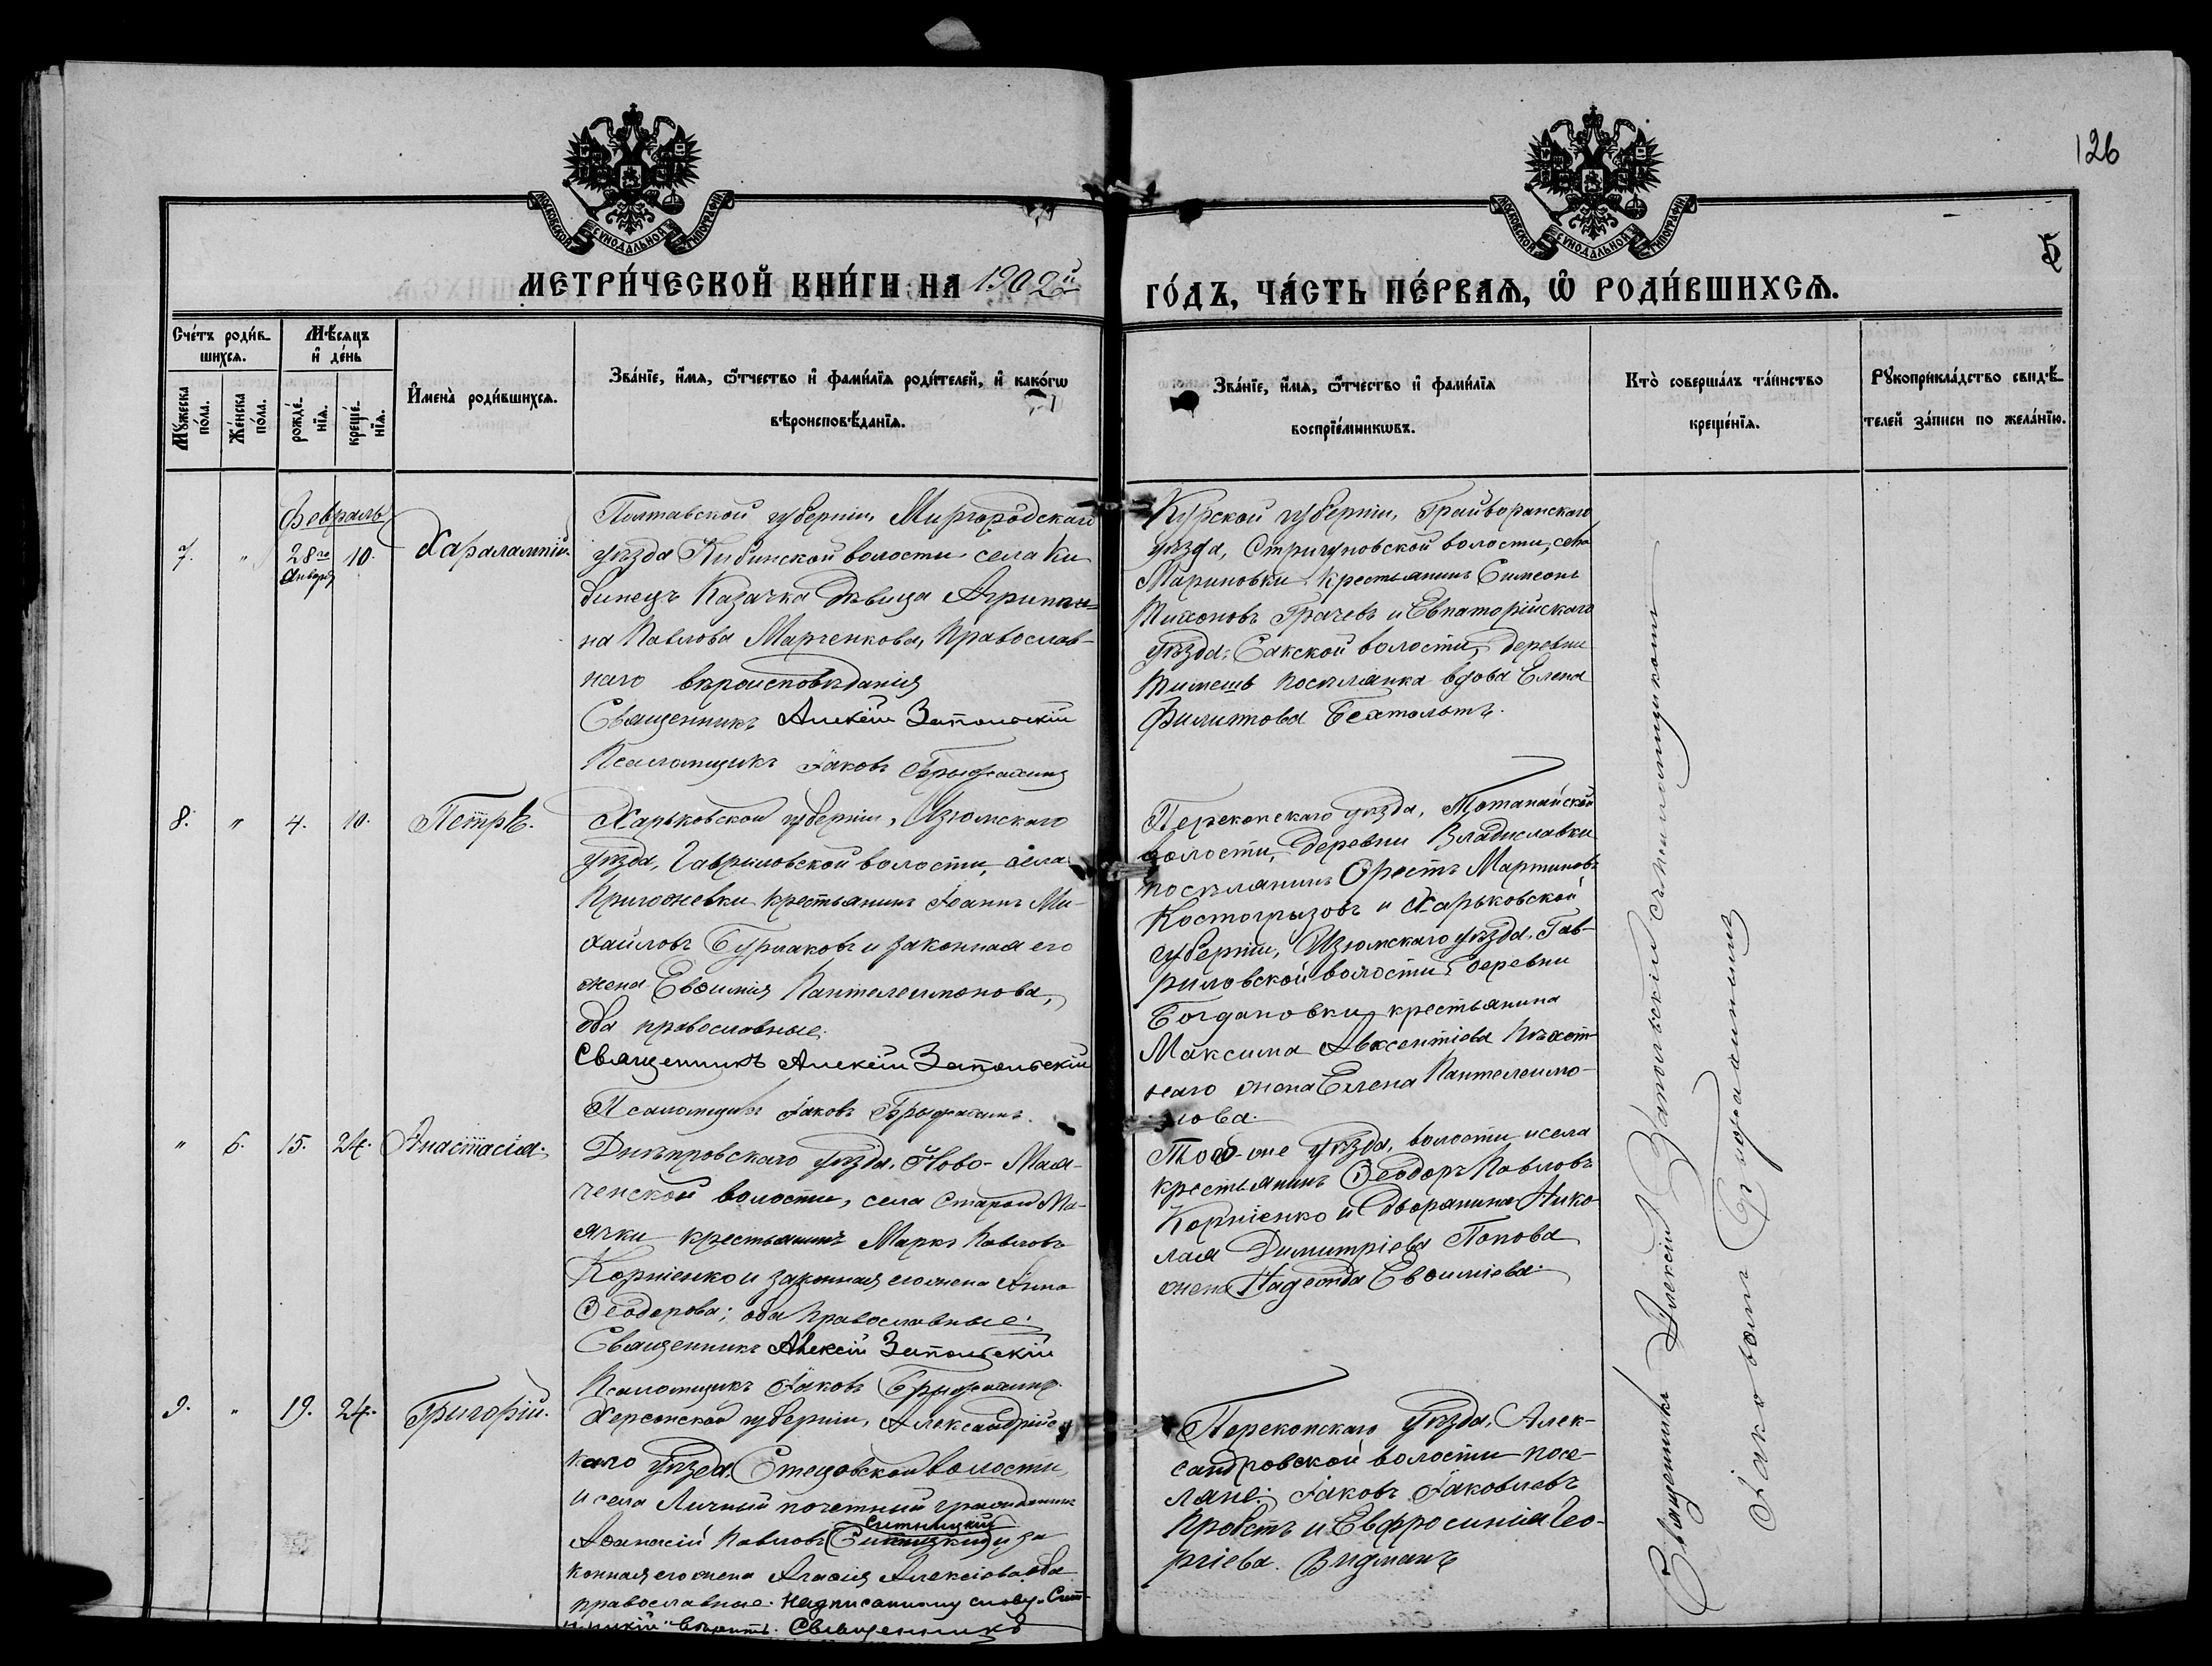 126
5
МОСКОВСКОЙ СУНОДАЛЬНОЙ ТИПОГРАФІИ
МОСКОВСКОЙ СУНОДАЛЬНОЙ ТИПОГРАФІИ
МЕТРИ́ЧЕСКОЙ КНИ́ГИ НА 1902й
ГО́ДЪ, ЧА́СТЬ ПЕ́РВАЯ, Ѡ҆ РОДИ́ВШИХСЯ.
Сче́тъ роди́в-
шихся.
Мѣ́сяцъ
и҆ де́нь
Мꙋ́жеска по́ла.
Же́нска по́ла.
рожде́-нїя.
креще́-нїя.
И҆мена̀ роди́вшихся.
Зва́нїе, и҆́мя, ѻ҆́тчество и҆ фами́лїя роди́телей, и҆ како́гѡ
вѣроисповѣ́данїя.
Зва́нїе, и҆́мя, ѻ҆́тчество и҆ фами́лїя
воспрїе́мникѡвъ.
Кто̀ соверша́лъ та́инство
креще́нїя.
Рꙋкоприкла́дство свидѣ́-
телей за́писи по жела́нїю.
Февраль
7. " 28го Января 10. Харалампій.
Полтавской губерніи, Миргородскаго
уѣзда Кибинской волости села Ки-
бинецъ Казачка дѣвица Агриппи-
на Павлова Марченкова, Православ-
наго вѣроисповѣданія
Священникъ Алексій Запольскій
Псаломщикъ Іаковъ Брыжахинъ
Курской губерніи, Грайворанскаго
уѣзда, Стригуновской волости, села
Мариновки крестьянинъ Симеонъ
Тихоновъ Грачевъ и Евпаторійскаго
уѣзда, Сакской волости, деревни
Тимешъ поселянка вдова Елена
Филиппова Бехтольтъ.
8. " 4. 10. Петръ.
Харьковской губерніи, Изюмскаго
уѣзда, Гавриловской волости, села
Пригожевки крестьянинъ Іоаннъ Ми-
хайловъ Бурлаковъ и законная его
жена Евѳимія Пантелеимонова,
оба православные.
Священникъ Алексій Запольскій
Псаломщикъ Іаковъ Брыжахинъ.
Перекопскаго уѣзда, Тотанайской
волости, деревни Владиславки
поселянинъ Орестъ Мартиновъ
Костогрызовъ и Харьковской
губерніи, Изюмскаго уѣзда, Гав-
риловской волости, деревни
Богдановки крестьянина
Максима Авксентіева Пѣхот-
наго жена Елена Пантелеимо-
нова.
" 6. 15. 24. Анастасія.
Днѣпровскаго уѣзда, Ново-Мая-
ченской волости, села Старой Ма-
ячки крестьянинъ Маркъ Павловъ
Корніенко и законная его жена Анна
Ѳеодорова; оба Православные.
Священникъ Алексій Запольскій
Псаломщикъ Іаковъ Брыжахинъ.
Того-же уѣзда, волости и села
крестьянинъ Ѳеодоръ Павловъ
Корніенко и Дворянина Нико-
лая Димитріева Попова
жена Надежда Евѳиміева.
9. " 19. 24. Григорій.
Херсонской губерніи, Александрійс-
каго уѣзда, Стецовской волости
и села Личный почетный гражданинъ
Ситницкій
Аѳанасій Павловъ (Ситницкій) и за-
конная его жена Агаѳія Алексіева оба
православные. Надписанному слову "Сит-
ницкій" вѣрить. Священникъ
Перекопскаго уѣзда, Алек-
сандровской волости посе-
ляне: Іаковъ Іаковлевъ
Пробстъ и Евфросинія Гео-
ргіева Видманъ
Священникъ Алексій Запольскій съ псаломщикомъ
Іаковомъ Брыжахинымъ